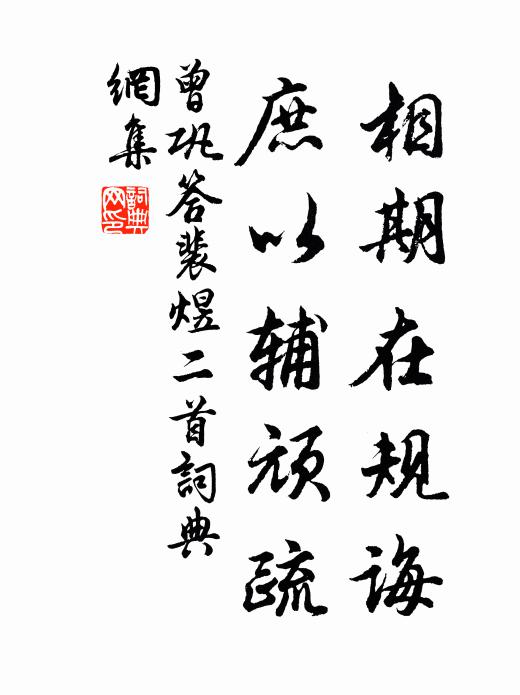 相期在规诲
庶以辅顽疏
曾巩答裴煜二首詞典
網集
詞典網印